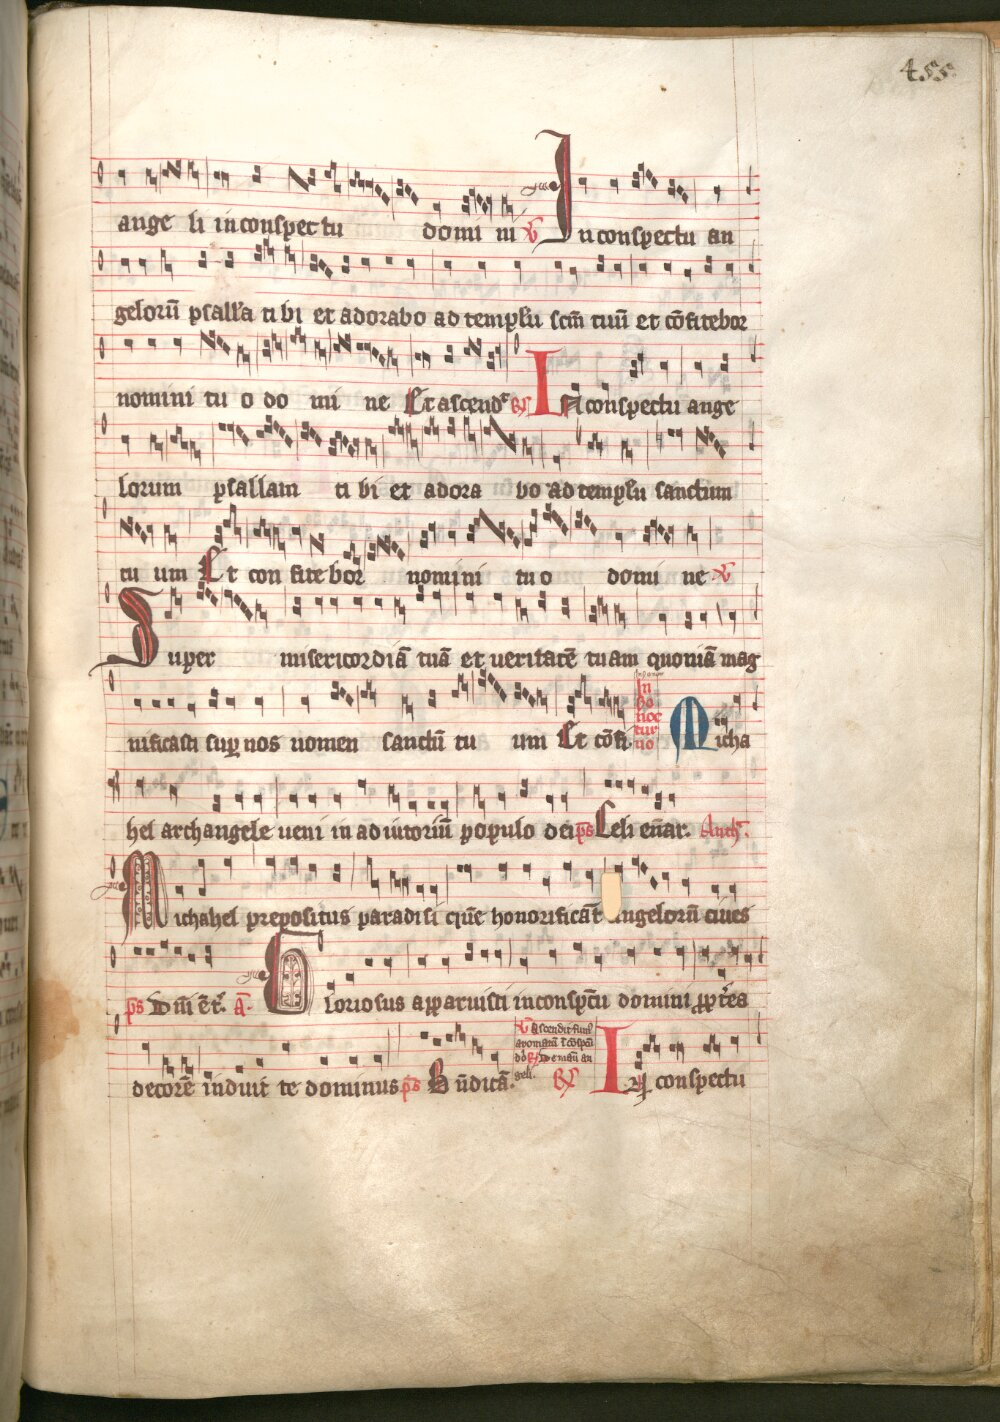 ange li in conspec tu domi ni V In conspectu an
gelorū psallā ti bi et adorabo ad templū scm̄ tuū et cōfitebor
nomini tu o do mi ne Et ascend R In conspectu ange
lorum psallam ti bi et adora bo ad templū sanctum
tu um Et con fite bor nomini tu o domi ne V
Super misericordiā tuā et veritatē tuam quoniā mag
nificasti sup nos nomen sanctū tu um Et cōfi. In ijo noc tur no Micha
hel archangele veni in adiutoriū populo dei ps Celi enar.
Michahel prepositus paradisi quē honorificāt angelorū cives
ps Dn̄i ēt. a. Gloriosus apparuisti in conspctū domini pptea
decorē induit te dominus ps Bn̄dicā. V Ascendit fum
aromatū ī cōspcū
dō R De manū an
geli. R In conspectu